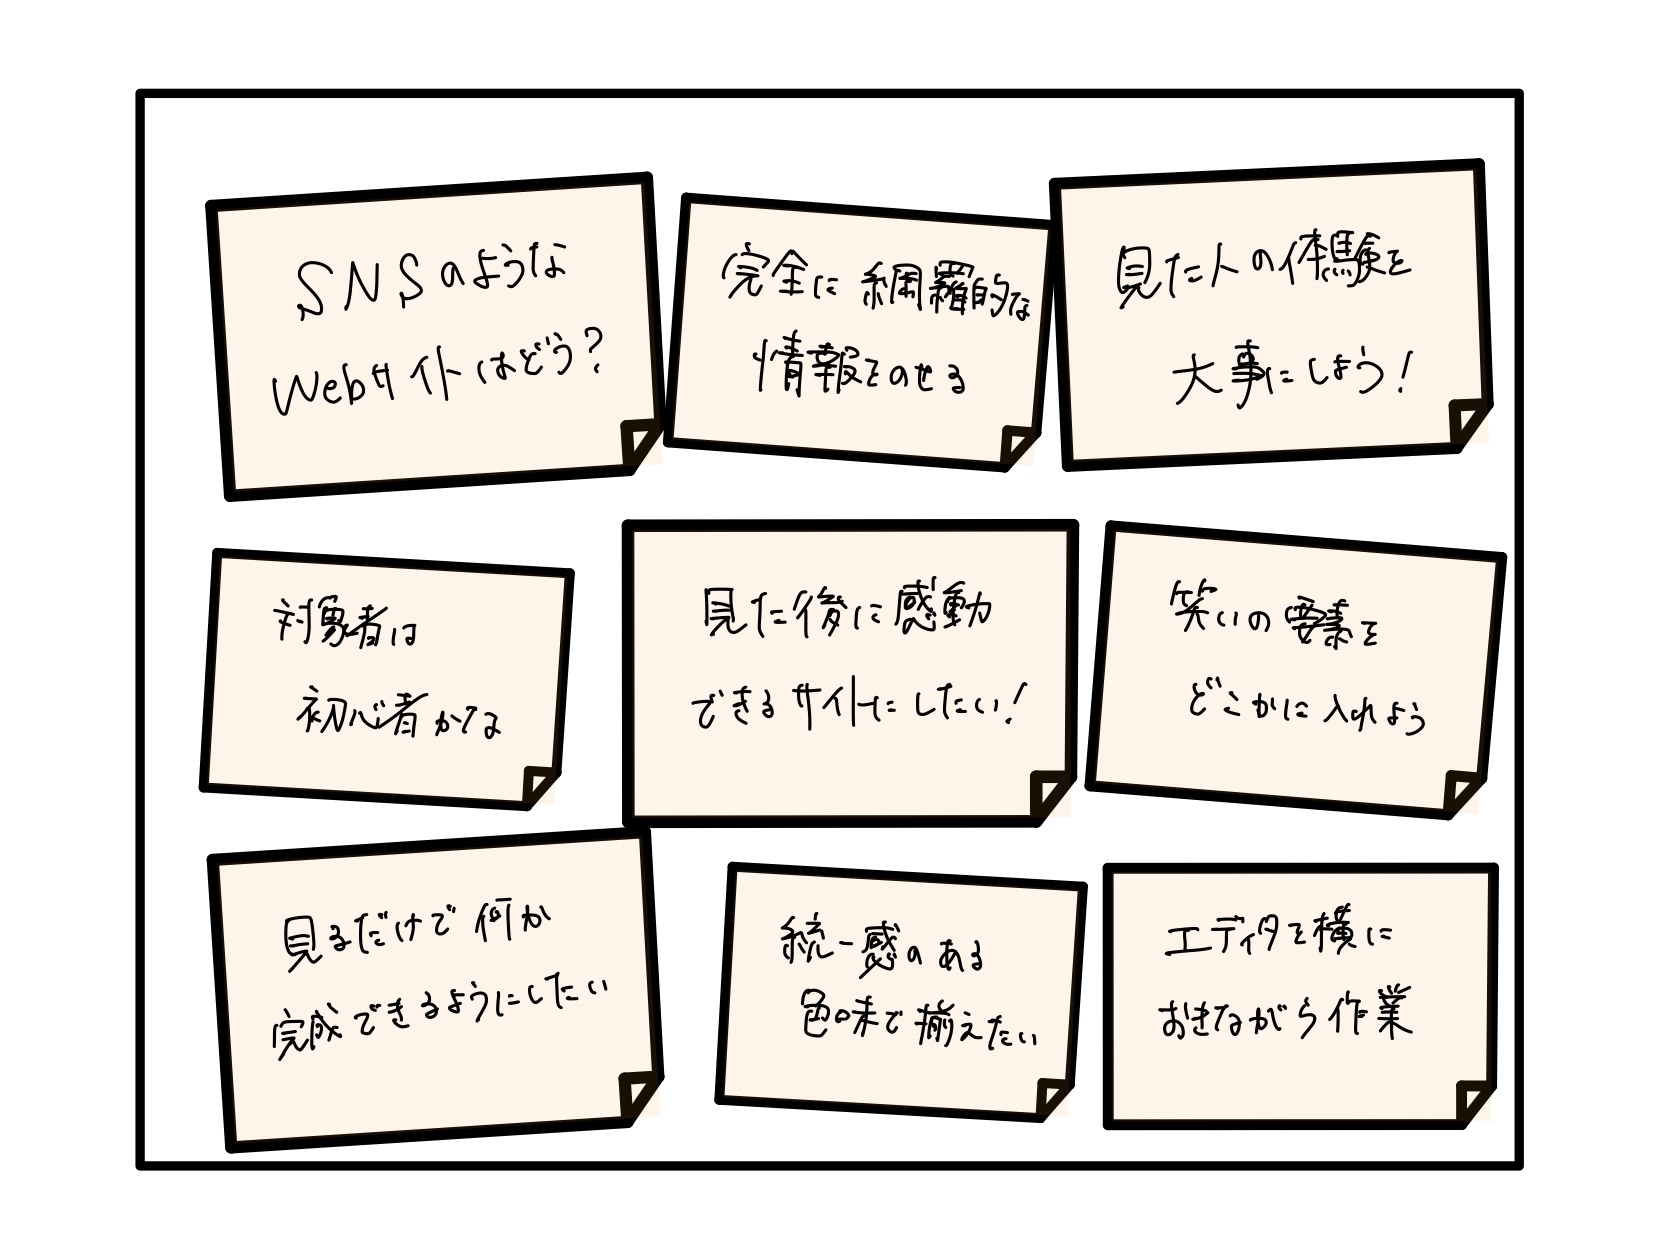 SNSのような
Webサイトはどう?
完全に網羅的な
情報をのせる
見た人の体験を
大事にしよう!
対象者は
初心者かな
見た後に感動
できるサイトにしたい!
笑いの要素を
どこかに入れよう
見るだけで何か
完成できるようにしたい
統一感のある
色味で揃えたい
エディタを横に
おきながら作業